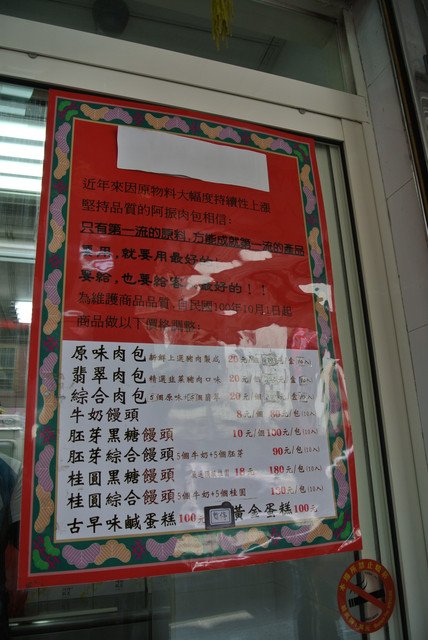 近年來因原物料大幅度持續性上漲
堅持品質的阿振肉包相信：
只有第一流的原料，方能成就第一流的產品
要用，就要用最好的！
要給，也要給客 最好的！！
為維護商品品質，自民國100年10月1日起
商品做以下價格調整：
原味肉包 新鮮上選豬肉製成 20元/個 元/盒(10入)
翡翠肉包 精選韭菜豬肉口味 20元/個 元/盒(10入)
綜合肉包 5個原味+5個翡翠 20元/個 元/盒(10入)
牛奶饅頭 8元/個 80元/包(10入)
胚芽黑糖饅頭 10元/個 100元/包(10入)
胚芽綜合饅頭 5個牛奶+5個胚芽 90元/包(10入)
桂圓黑糖饅頭 18元/個 180元/包(10入)
桂圓綜合饅頭 5個牛奶+5個桂圓 130元/包(10入)
古早味鹹蛋糕100元 黃金蛋糕100元